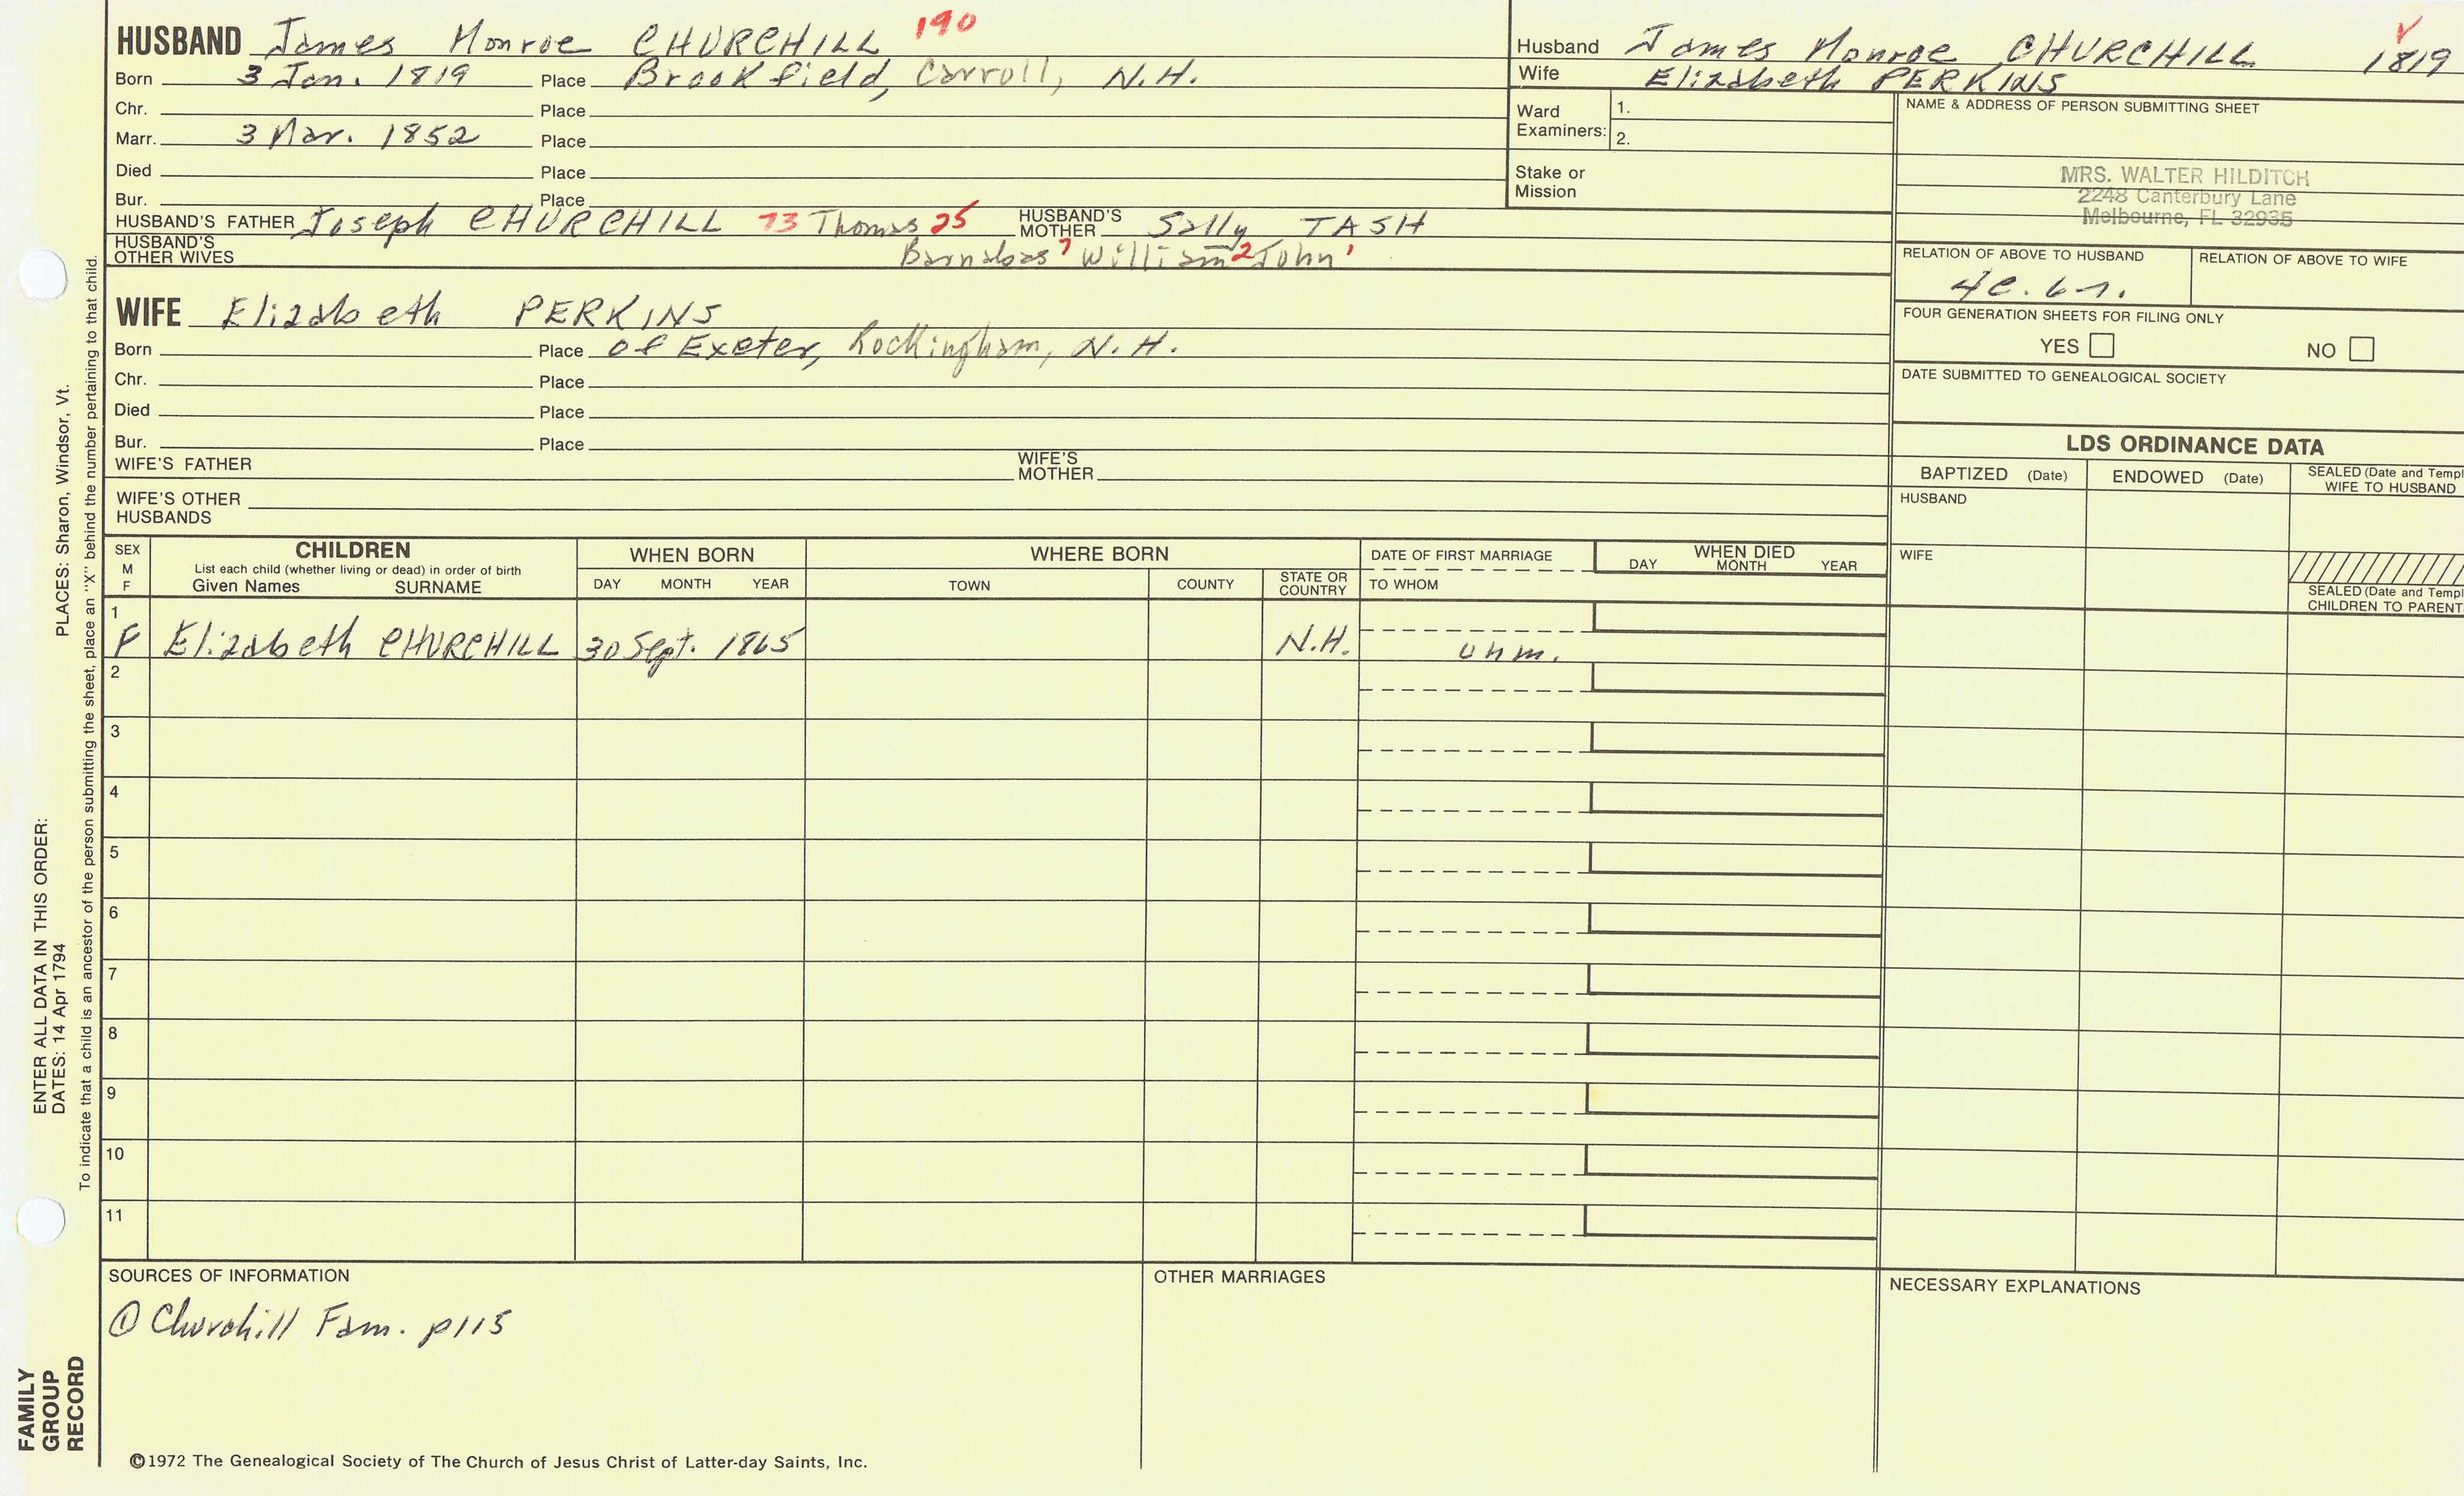 HUSBAND James Monroe CHURCHILL 190
Born 3 Jan. 1819 Place Brookfield, Carroll, N.H.
Chr. Place
Marr. 3 Mar. 1852 Place
Died Place
Bur. Place
HUSBAND'S FATHER Joseph CHURCHILL 73 Thomas 25 HUSBAND'S MOTHER Sally TASH
HUSBAND'S OTHER WIVES Barnabas 7 William 2 John 1
WIFE Elizabeth PERKINS
Born Place of Exeter, Rockingham, N.H.
Chr. Place
Died Place
Bur. Place
WIFE'S FATHER WIFE'S MOTHER
WIFE'S OTHER HUSBANDS
Husband James Monroe CHURCHILL 1819
Wife Elizabeth PERKINS
Ward Examiners: 1.
2.
Stake or Mission
NAME & ADDRESS OF PERSON SUBMITTING SHEET
MRS. WALTER HILDITCH
2248 Canterbury Lane
Melbourne, FL 32935
RELATION OF ABOVE TO HUSBAND RELATION OF ABOVE TO WIFE
4c. 6r.
FOUR GENERATION SHEETS FOR FILING ONLY
YES NO
DATE SUBMITTED TO GENEALOGICAL SOCIETY
LDS ORDINANCE DATA
BAPTIZED (Date) ENDOWED (Date) SEALED (Date and Templ
WIFE TO HUSBAND
HUSBAND
WIFE
SEALED (Date and Templ
CHILDREN TO PARENT
SEX M F CHILDREN WHEN BORN WHERE BORN DATE OF FIRST MARRIAGE WHEN DIED
List each child (whether living or dead) in order of birth
Given Names SURNAME DAY MONTH YEAR TOWN COUNTY STATE OR COUNTRY TO WHOM DAY MONTH YEAR
1
F Elizabeth CHURCHILL 30 Sept. 1865 N.H. unm.
2
3
4
5
6
7
8
9
10
11
SOURCES OF INFORMATION OTHER MARRIAGES NECESSARY EXPLANATIONS
① Churchill Fam. p115
©1972 The Genealogical Society of The Church of Jesus Christ of Latter-day Saints, Inc.
FAMILY
GROUP
RECORD
ENTER ALL DATA IN THIS ORDER:
DATES: 14 Apr 1794 PLACES: Sharon, Windsor, Vt.
To indicate that a child is an ancestor of the person submitting the sheet, place an "X" behind the number pertaining to that child.